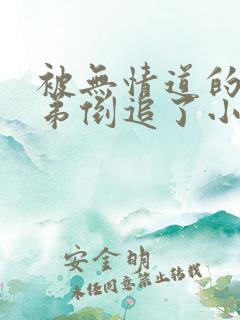 被無情道的
弟倒追了小
安金明
未经同意禁止转载